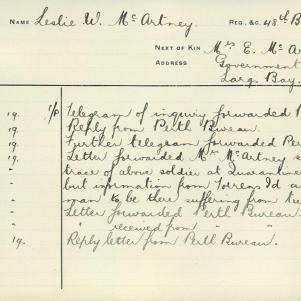 NAME Leslie W. McArtney. REG. &C. 48th B
NEXT OF KIN Mrs E. McA
ADDRESS Government
Larg. Bay.
19. Telegram of inquiry forwarded P
19. Reply from Perth Bureau.
19. Further telegram forwarded Per
19. Letter forwarded Mrs McArtney s
" trace of above soldier at Quarantine
" but information from Torrens I'd a
" man to be there suffering from
" Letter forwarded Perth Bureau.
" " received from " "
19. Reply letter from Perth Bureau.